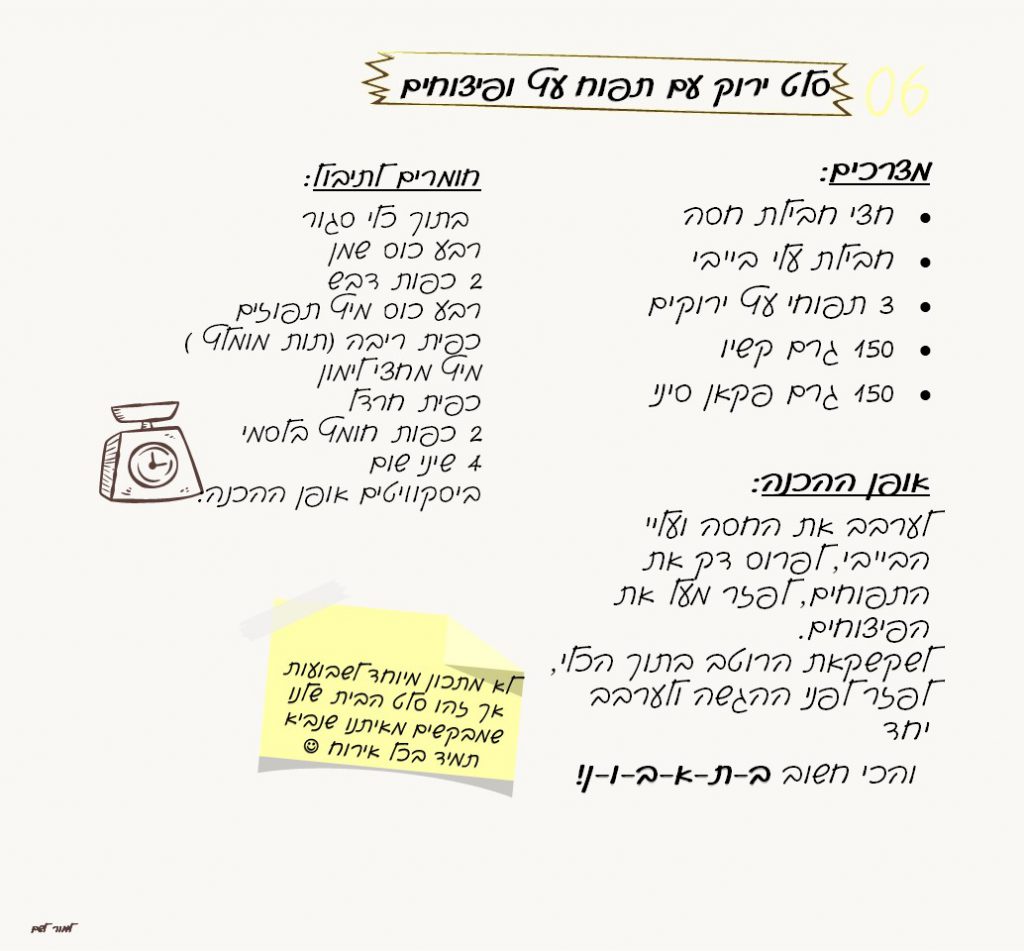 06
סלט ירוק עם תפוח עץ ופיצוחים
מצרכים:
• חצי חבילת חסה
• חבילת עלי בייבי
• 3 תפוחי עץ ירוקים
• 150 גרם קשיו
• 150 גרם פקאן סיני
אופן ההכנה:
לערבב את החסה ועליי
הבייבי, לפרוס דק את
התפוחים, לפזר מעל את
הפיצוחים.
לשקשקאת הרוטב בתוך הכלי,
לפזר לפני ההגשה ולערבב
יחד
והכי חשוב ב-ת-א-ב-ו-ן!
חומרים לתיבול:
בתוך כלי סגור
רבע כוס שמן
2 כפות דבש
רבע כוס מיץ תפוזים
כפית ריבה (תות מומלץ )
מיץ מחצי לימון
כפית חרדל
2 כפות חומץ בלסמי
4 שיני שום
ביסקוויטים אופן ההכנה:
לא מתכון מיוחד לשבועות
אך זהו סלט הבית שלנו
שמבקשים מאיתנו שנביא
תמיד בכל אירוח ☺